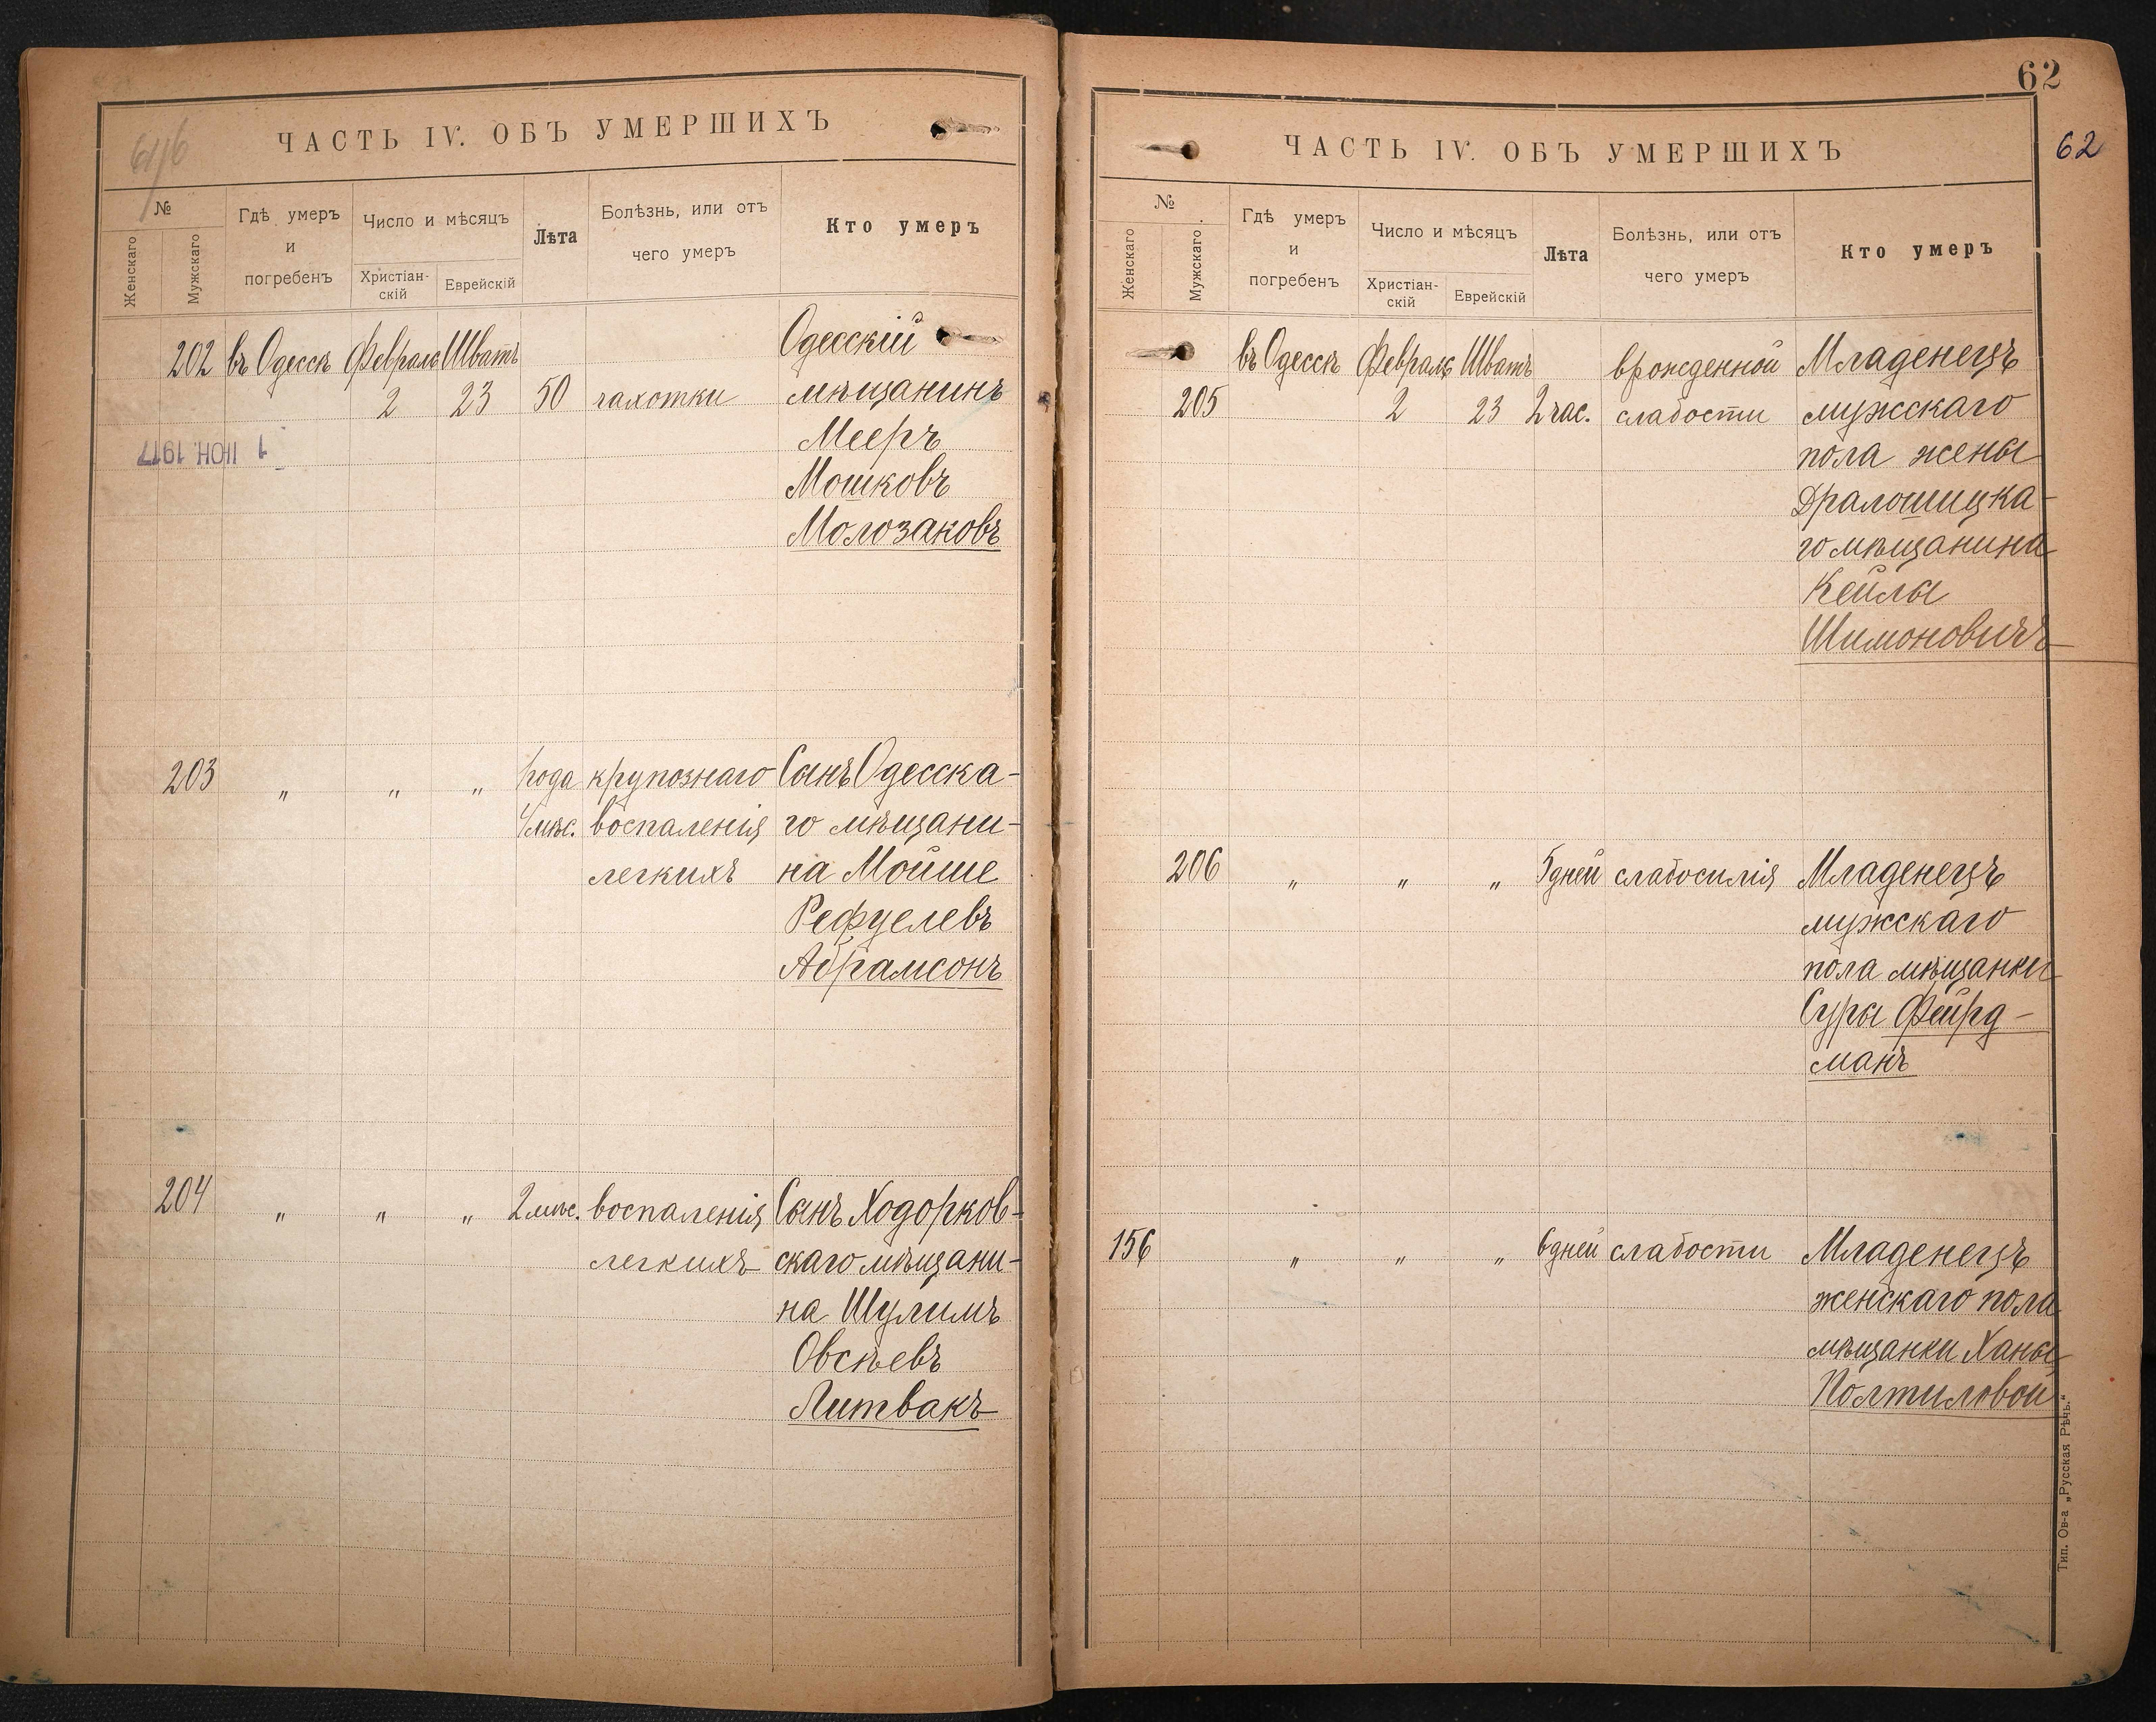 ЧАСТЬ IV. ОБЪ УМЕРШИХЪ
№
Женскаго
Мужскаго
Гдѣ умеръ
и
погребенъ
Число и мѣсяцъ
Христіан-
скій
Еврейскій
Лѣта
Болѣзнь, или отъ
чего умеръ
Кто умеръ
202 въ Одессѣ Февраль Шватъ Одесскій
2 23 50 чахотки мѣщанинъ
1 ІЮН. 1917 Мееръ
Мошковъ
Молозаковъ
203 „ „ „ 1 года крупознаго Сынъ Одесска-
4 мѣс. воспаленія го мѣщани-
легкихъ на Мойше
Рефуелевъ
Абрамсонъ
204 „ „ „ 2 мѣс. воспаленія Сынъ Ходорков-
легкихъ скаго мѣщани-
на Шулимъ
Овсѣевъ
Литвакъ
62
62
ЧАСТЬ IV. ОБЪ УМЕРШИХЪ
№
Женскаго
Мужскаго
Гдѣ умеръ
и
погребенъ
Число и мѣсяцъ
Христіан-
скій
Еврейскій
Лѣта
Болѣзнь, или отъ
чего умеръ
Кто умеръ
въ Одессѣ Февраль Шватъ врожденной Младенецъ
205 2 23 2 час. слабости мужскаго
пола жены
го мѣщанина
Кейлы
Шимоновичъ
206 „ „ „ 5 дней слабосилія Младенецъ
мужскаго
пола мѣщанки
Суры Фейрд-
манъ
156 „ „ „ 6 дней слабости Младенецъ
женскаго пола
мѣщанки Ханы
Полтиловой
Тип. Ов-а „Русская Рѣчь.“